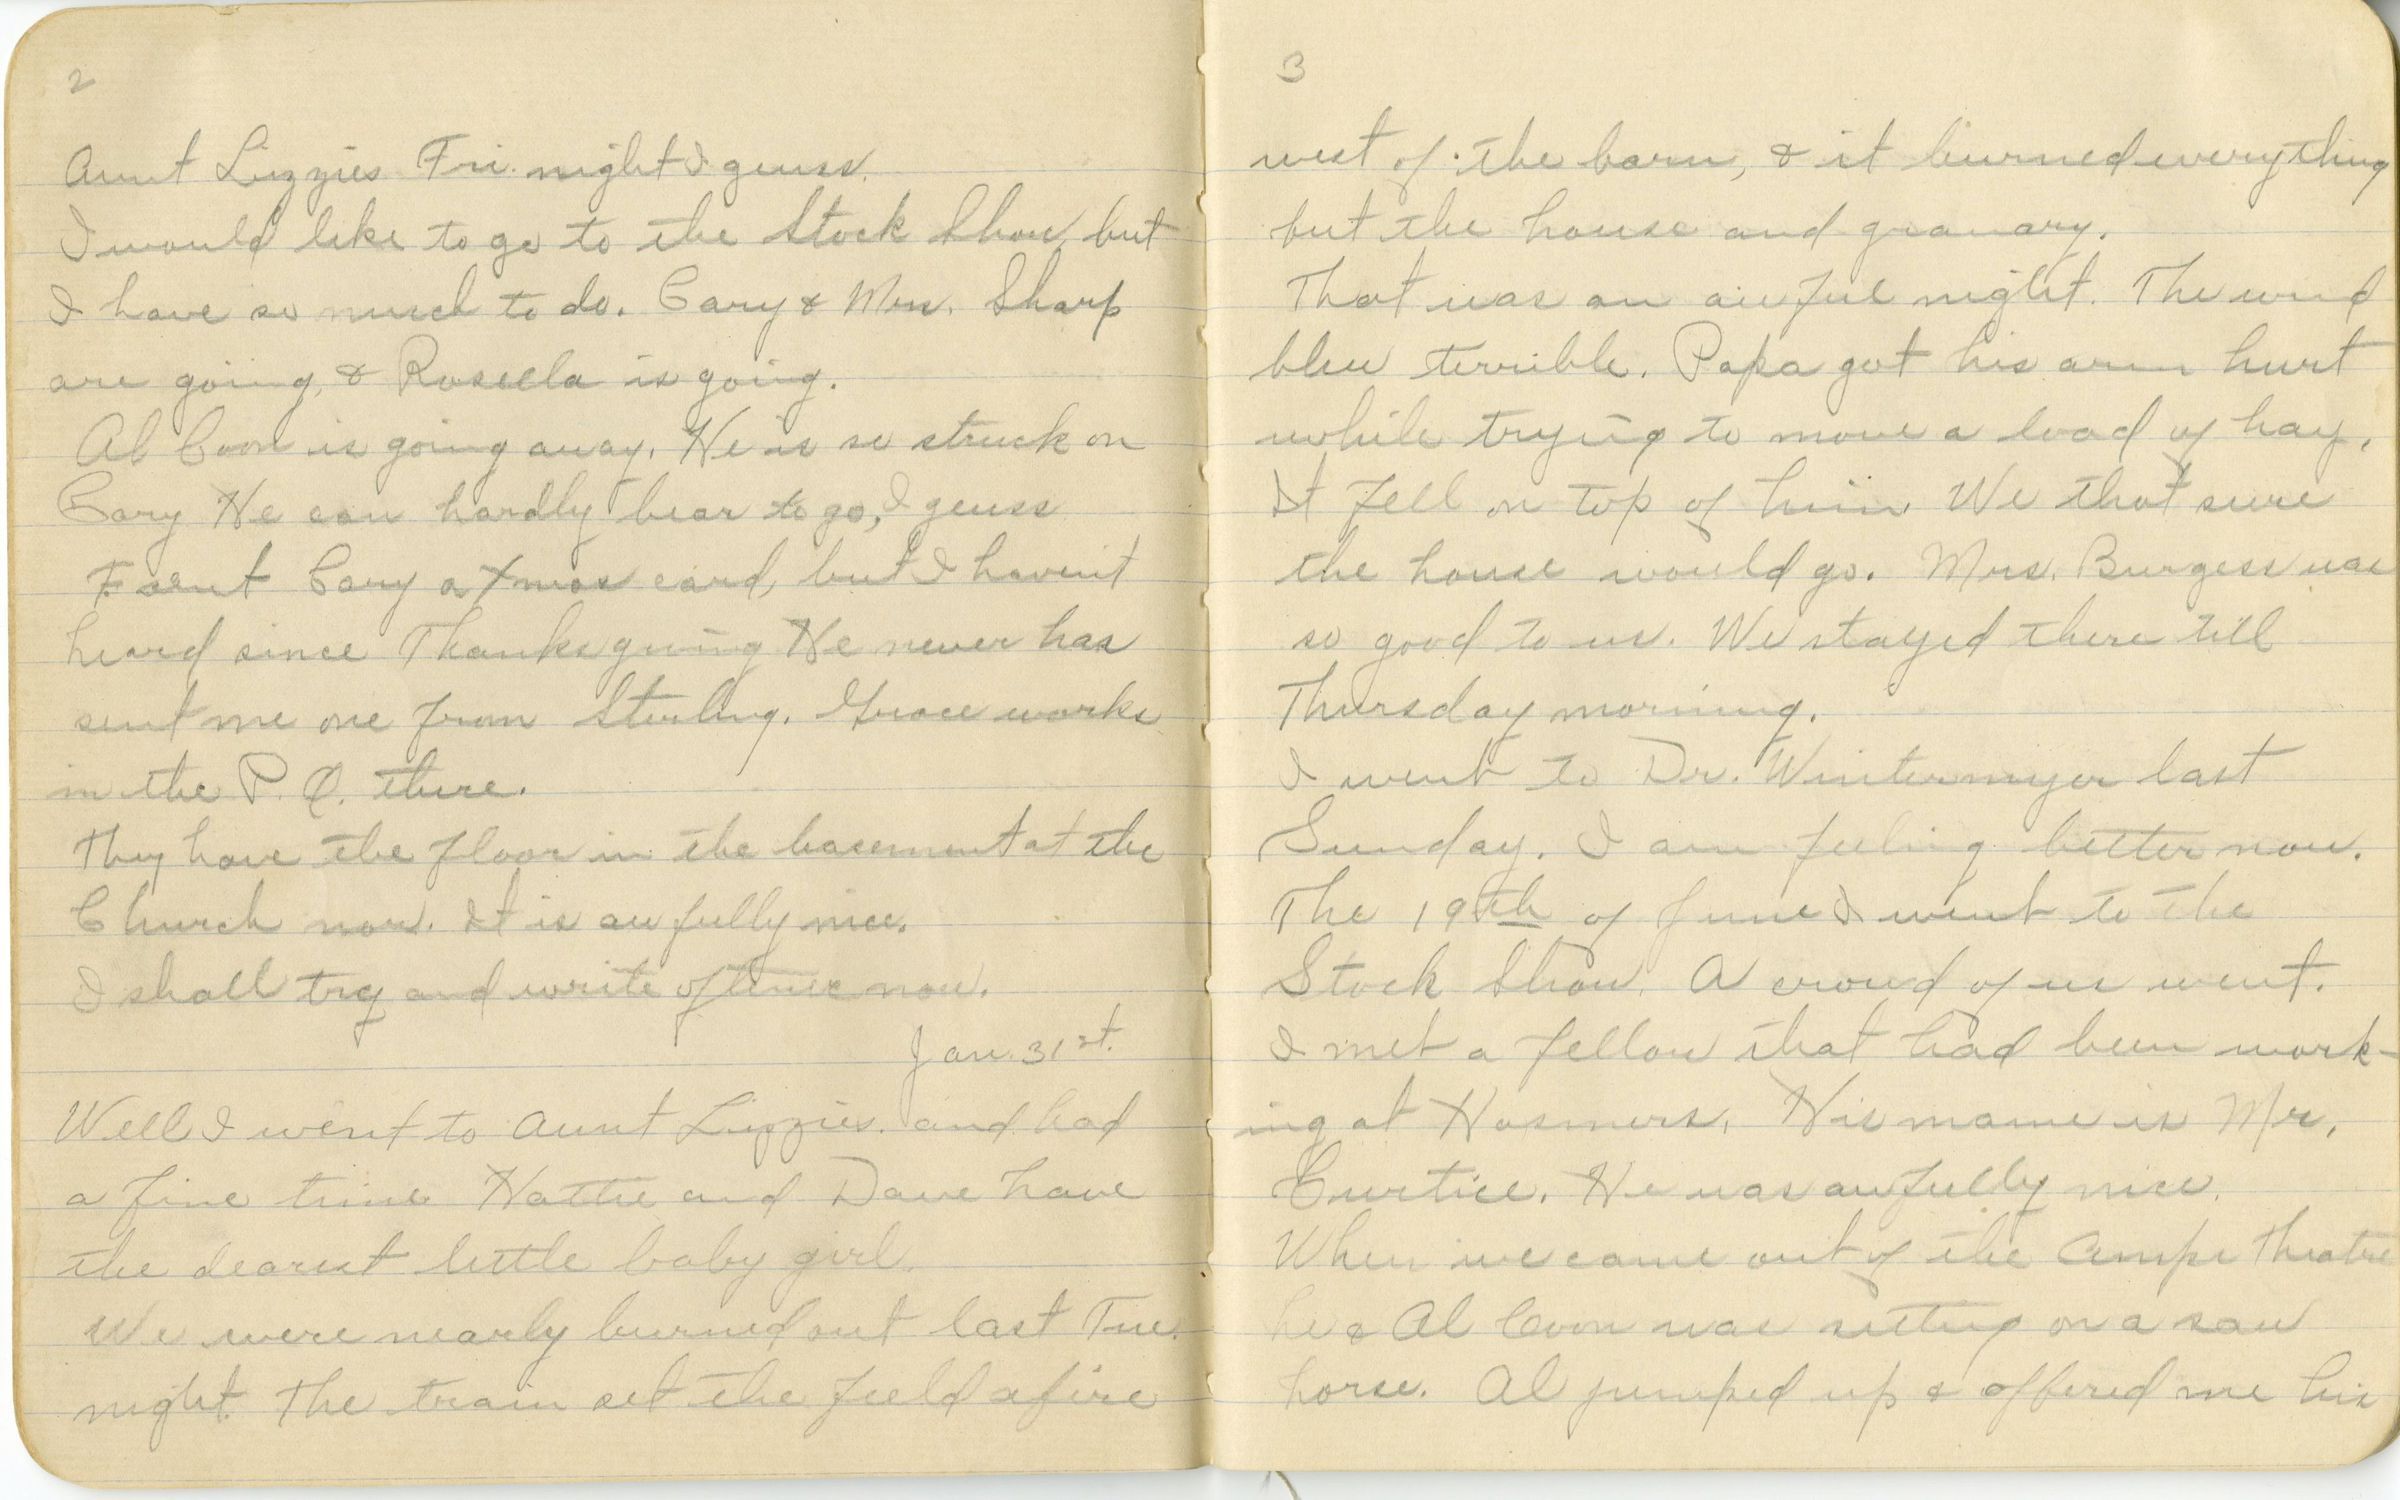 2
Aunt Lizzies Fri. night I guess.
I would like to go to the Stock Show, but
I have so much to do. Cary & Mrs. Sharp
are going, & Rosella is going.
Al Coon is going away. He is so struck on
Cary He can hardly bear to go, I guess
I sent Cary a Xmas card, but I haven't
heard since Thanksgiving He never has
sent me one from Sterling. Grace works
in the P. O. there.
They have the floor in the basement at the
Church now. It is awfully nice.
I shall try and write oftener now.
Jan. 31st.
Well I went to Aunt Lizzies. and had
a fine time Hattie and Dave have
the dearest little baby girl.
We were nearly burned out last Tue.
night. The train set the field afire
3
west of the barn, & it burned everything
but the house and granary.
That was an awful night. The wind
blew terrible. Papa got his arm hurt
while trying to move a load of hay.
It fell on top of him. We that sure
the house would go. Mrs. Burgess was
so good to us. We stayed there till
Thursday morning.
I went to Dr. Wintermyer last
Sunday. I am feeling better now.
The 19th of June I went to the
Stock Show. A crowd of us went.
I met a fellow that had been work-
ing at Hosmers. His name is Mr.
Curtice. He was awfully nice.
When we came out of the Ampe Theatre
he & Al Coon was setting on a saw
horse. Al jumped up & offered me his